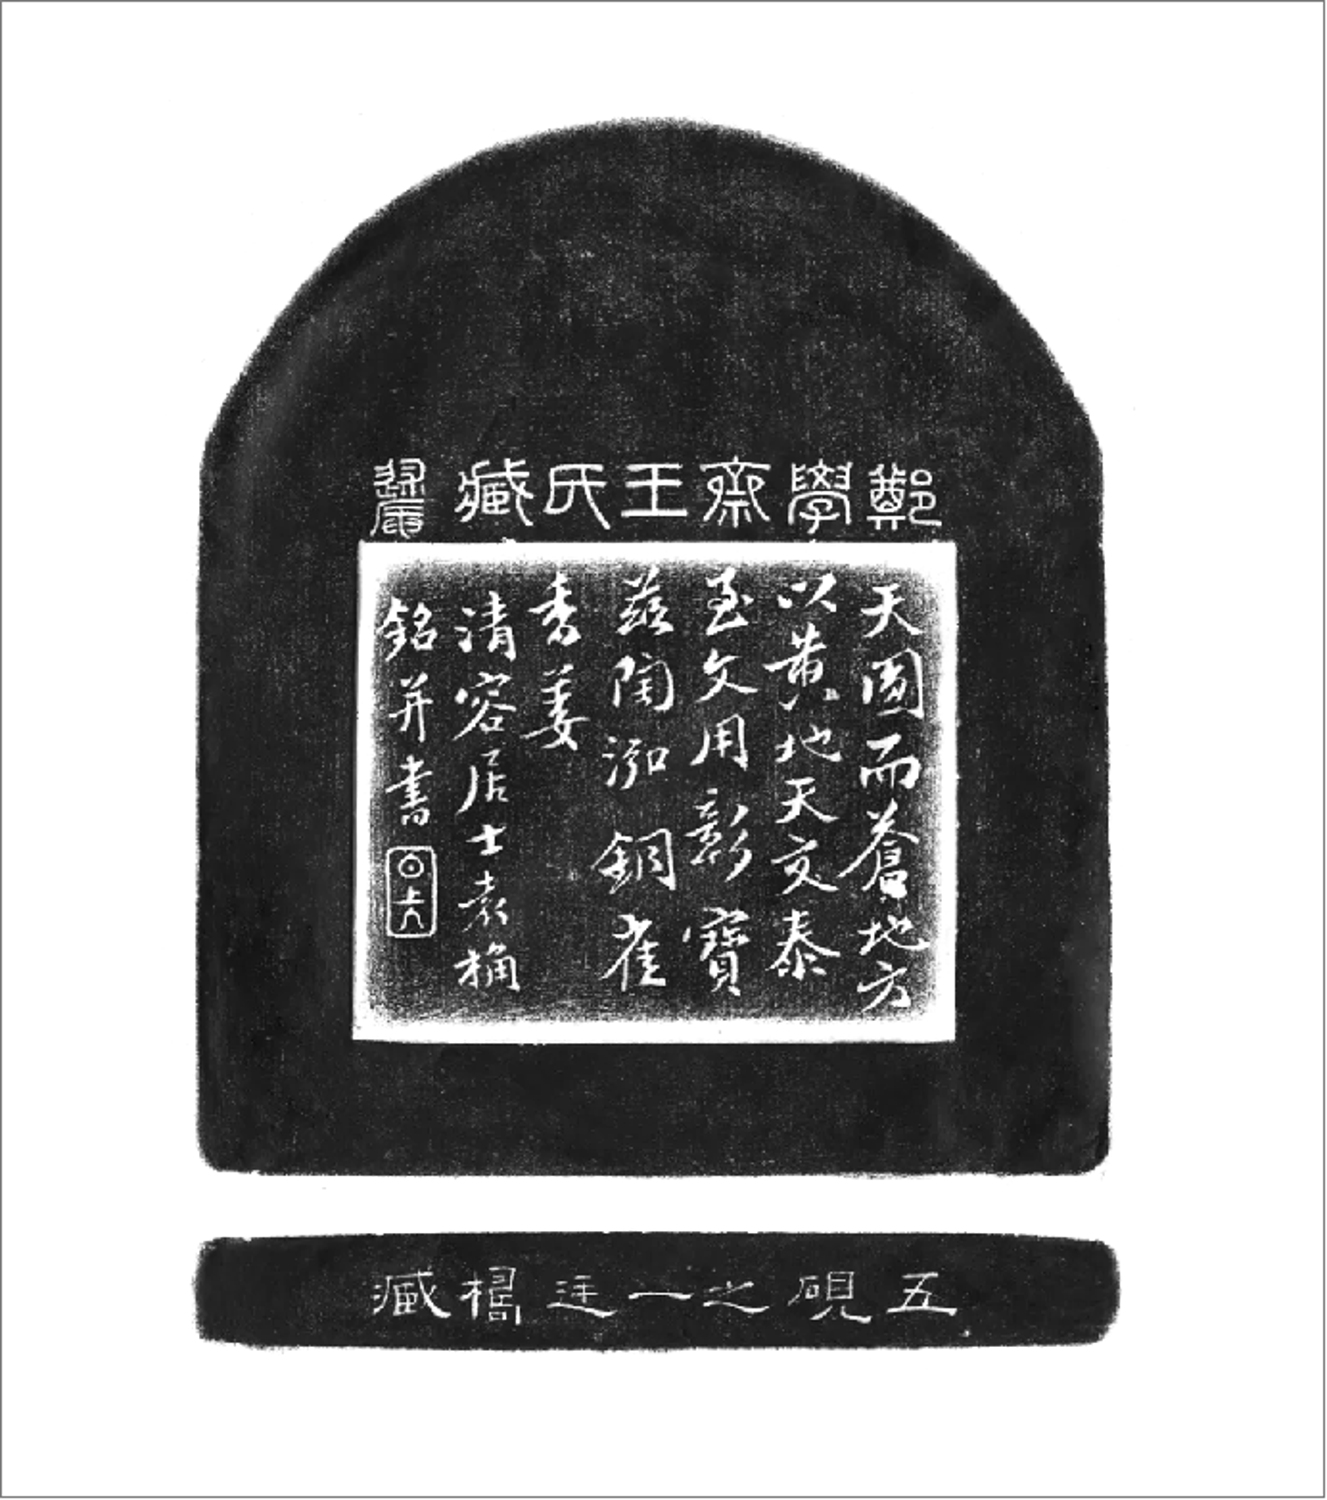 鄭學齋王氏藏
天圓而蒼地方
以黃地天交泰
至文用彰寶
茲陶泓銅雀
香姜
清容居士袁桷
銘并書
五硯之一廷藏